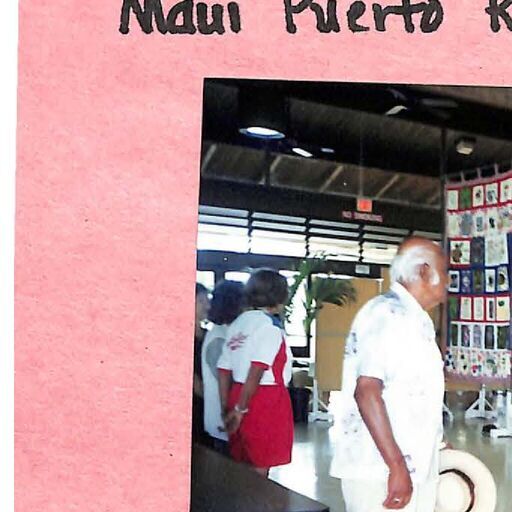 Maui Puerto R
NO SMOKING